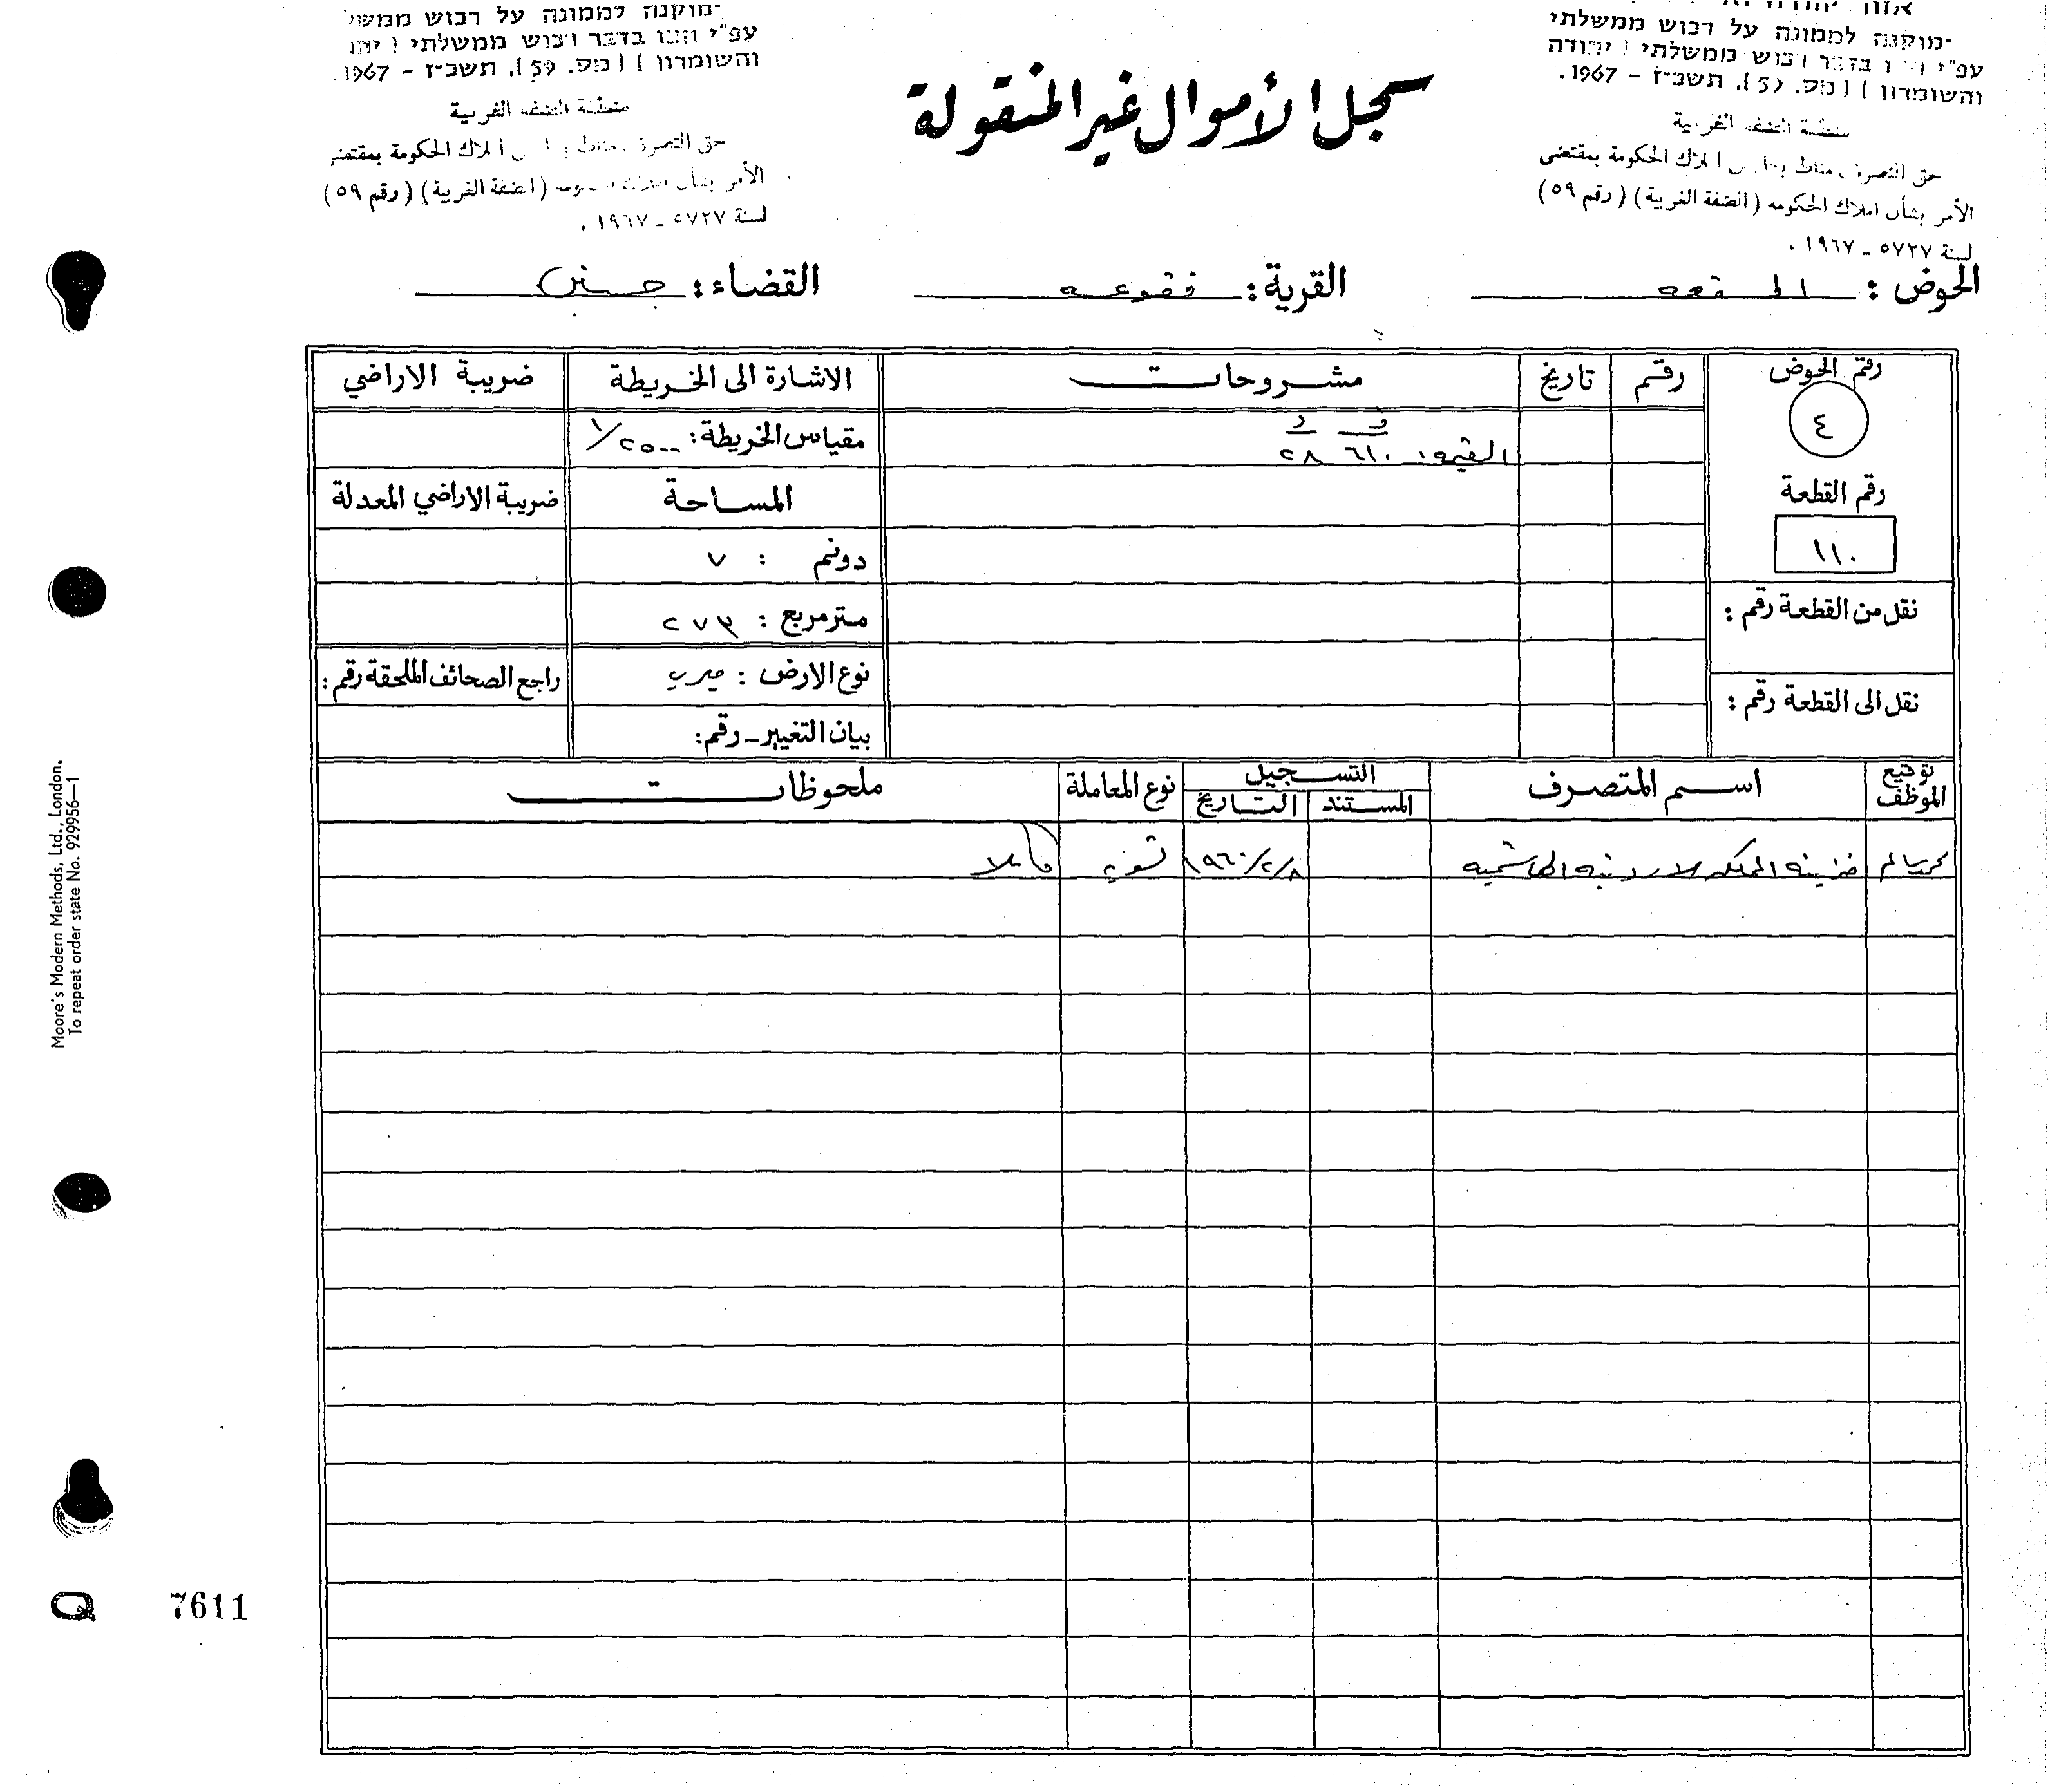 מוקנה לממונה על רכוש ממשלתי
עפ"י בדבר רכוש ממשלתי ( יהודה
והשומרון ) ( מס. 59 ), תשכ"ז - 1967.
منطقة الضفة الغربية
حق التصرف مناط بحارس املاك الحكومة بمقتضى
الأمر بشأن املاك الحكومة (الضفة الغربية) (رقم ٥٩)
لسنة ٥٧٢٧ - ١٩٦٧ .
سجل الأموال غير المنقولة
מוקנה לממונה על רכוש
עפ"י בדבר רכוש ממשלתי
והשומרון ) ( מס. 59 ), תשכ"ז - 1967.
منطقة الضفة الغربية
حق التصرف مناط املاك الحكومة بمقتضى
الأمر بشأن املاك الحكومة (الضفة الغربية) (رقم ٥٩)
لسنة ٥٧٢٧ - ١٩٦٧ .
الحوض : القرية : فقوعه القضاء : جنين
رقم الحوض رقم تاريخ مشروحات الاشارة الى الخريطة ضريبة الاراضي
٤
ف د
القيمة: ٦١٠ ٢٨
مقياس الخريطة: ١/٢٥٠٠
رقم القطعة المساحة ضريبة الاراضي المعدلة
١١٠ دونم : ٧
نقل من القطعة رقم : متر مربع : ٢٧٣
نوع الارض : ميري راجع الصحائف الملحقة رقم :
نقل الى القطعة رقم :
بيان التغيير - رقم:
توقيع الموظف اسم المتصرف التسجيل نوع المعاملة ملحوظات
المستند التاريخ
خزينة المملكه الاردنيه الهاشميه ١٩٦٠/٢/٨ تسويه كاملا
Moore's Modern Methods, Ltd., London.
To repeat order state No. 929956—1
Q 7611